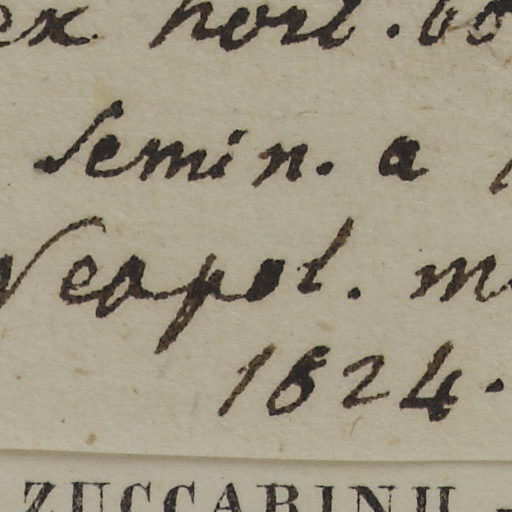 ex hort. bo
Semin. a
Neapol. m
1824.
ZUCCARINII